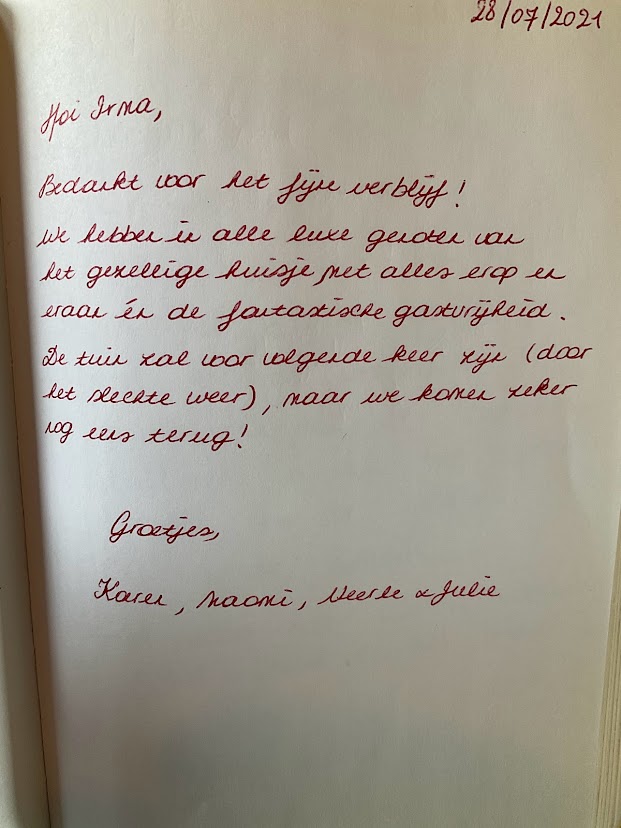 28/07/2021
Hoi Irma,
Bedankt voor het fijne verblijf!
We hebben in alle luxe genoten van
het gezellige huisje met alles erop en
eraan én de fantastische gastvrijheid.
De tuin zal voor volgende keer zijn (door
het slechte weer), maar we komen zeker
nog eens terug!
Groetjes,
Karen, Naomi, Veerle & Julie